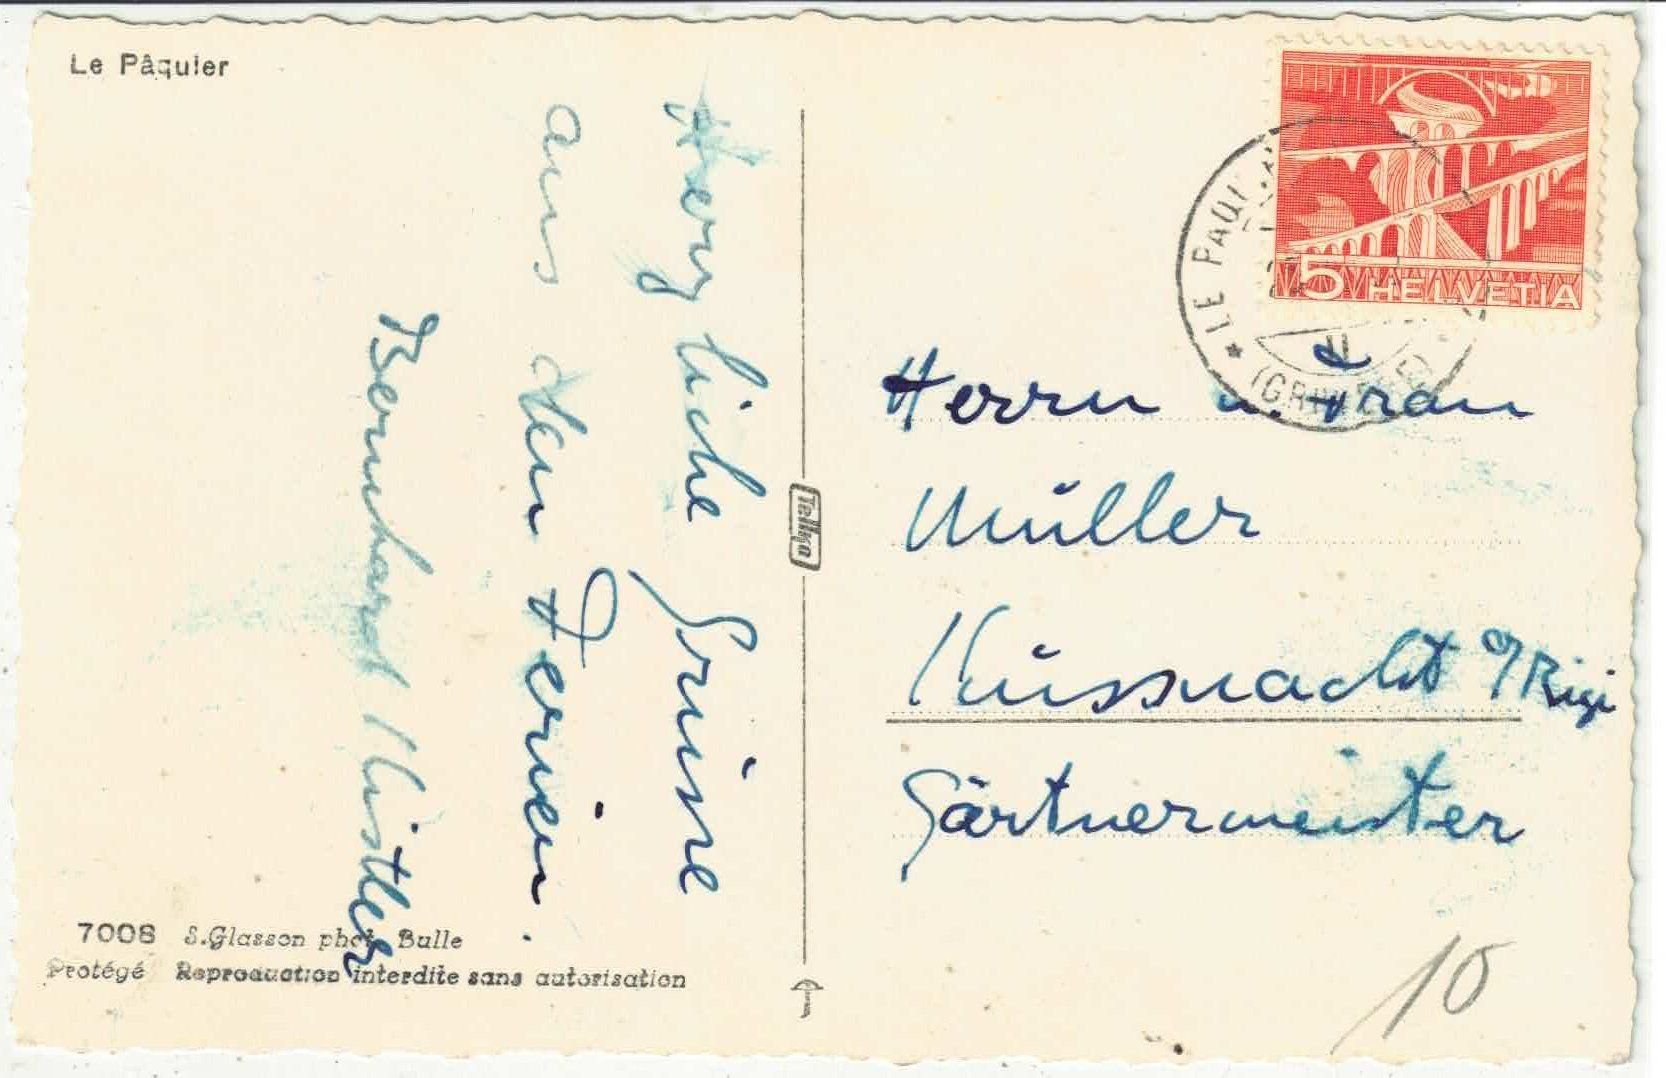 Le Pâquier
Herzliche Grüsse
aus den Ferien.
Bernhard Kistler
7008 S.Glasson phot. Bulle
Protégé Reproduction interdite sans autorisation
Tellko
5 HELVETIA
LE PAQUIER
(GRUYERE)
Herrn u. Frau
Müller
Küssnacht a/Rigi
Gärtnermeister
10